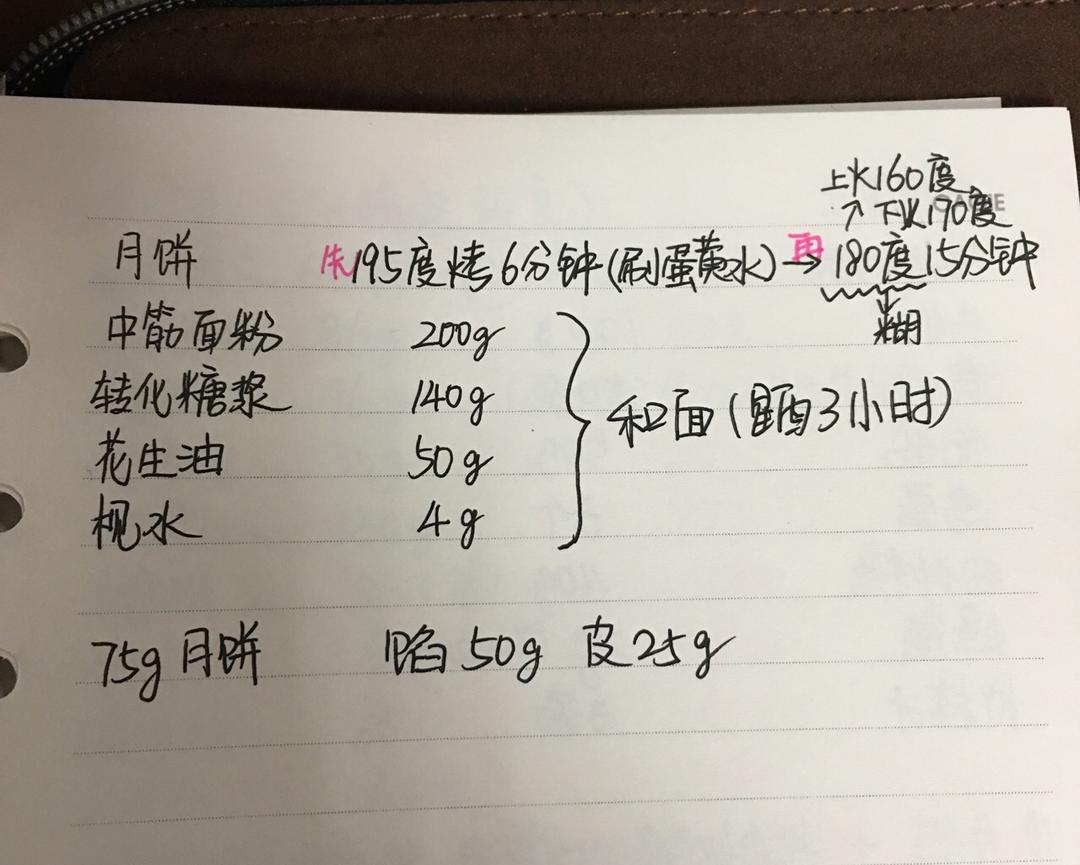 上火160度
↑ 下火190度
月饼 先195度烤6分钟(刷蛋黄水) 再→ 180度15分钟
糊
中筋面粉 200g
转化糖浆 140g
花生油 50g
枧水 4g
和面(醒3小时)
75g月饼 馅50g 皮25g